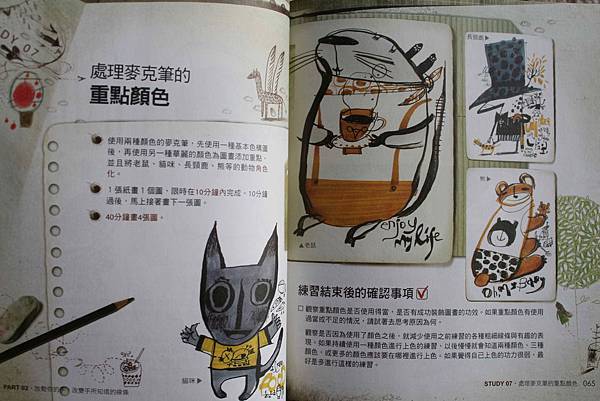 DY 07
處理麥克筆的
重點顏色
使用兩種顏色的麥克筆，先使用一種基本色構圖
後，再使用另一種華麗的顏色為圖畫添加重點，
並且將老鼠、貓咪、長頸鹿、熊等的動物角色
化。
1 張紙畫 1 個圖，限時在10分鐘內完成。10分鐘
過後，馬上接著畫下一張圖。
40分鐘畫4張圖。
貓咪▶
PART 02
改變手所知道的線條
enjoy
my life
▲老鼠
長頸鹿▼
熊▼
練習結束後的確認事項
□ 觀察重點顏色是否使用得當，是否有成功裝飾圖畫的功效。如果重點顏色有使用
過當或不足的情況，請試著去思考原因為何。
觀察是否因為使用了顏色之後，就減少使用之前練習的各種粗細線條與有趣的表
現。如果持續使用一種顏色進行上色的練習，以後慢慢就會知道兩種顏色、三種
顏色，或更多的顏色應該要在哪裡進行上色。如果覺得自己上色的功力很弱，最
好是多進行這樣的練習。
STUDY 07・處理麥克筆的重點顏色 065